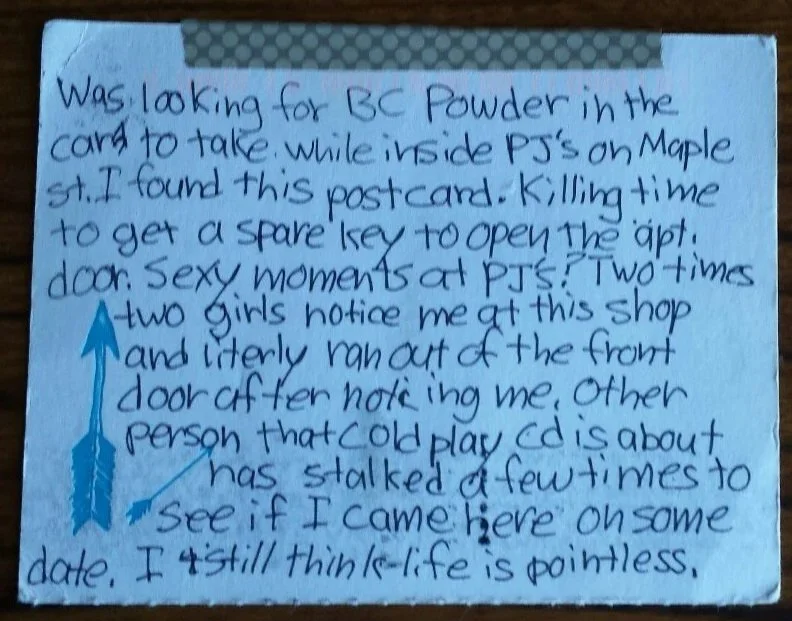 Was looking for BC Powder in the
card to take. while inside PJ's on Maple
st. I found this postcard. Killing time
to get a spare key to open the apt.
door. Sexy moments at PJ's? Two times
two girls notice me at this shop
and literly ran out of the front
door after noticing me. Other
person that coldplay cd is about
has stalked a few times to
see if I came here on some
date. I still think life is pointless.